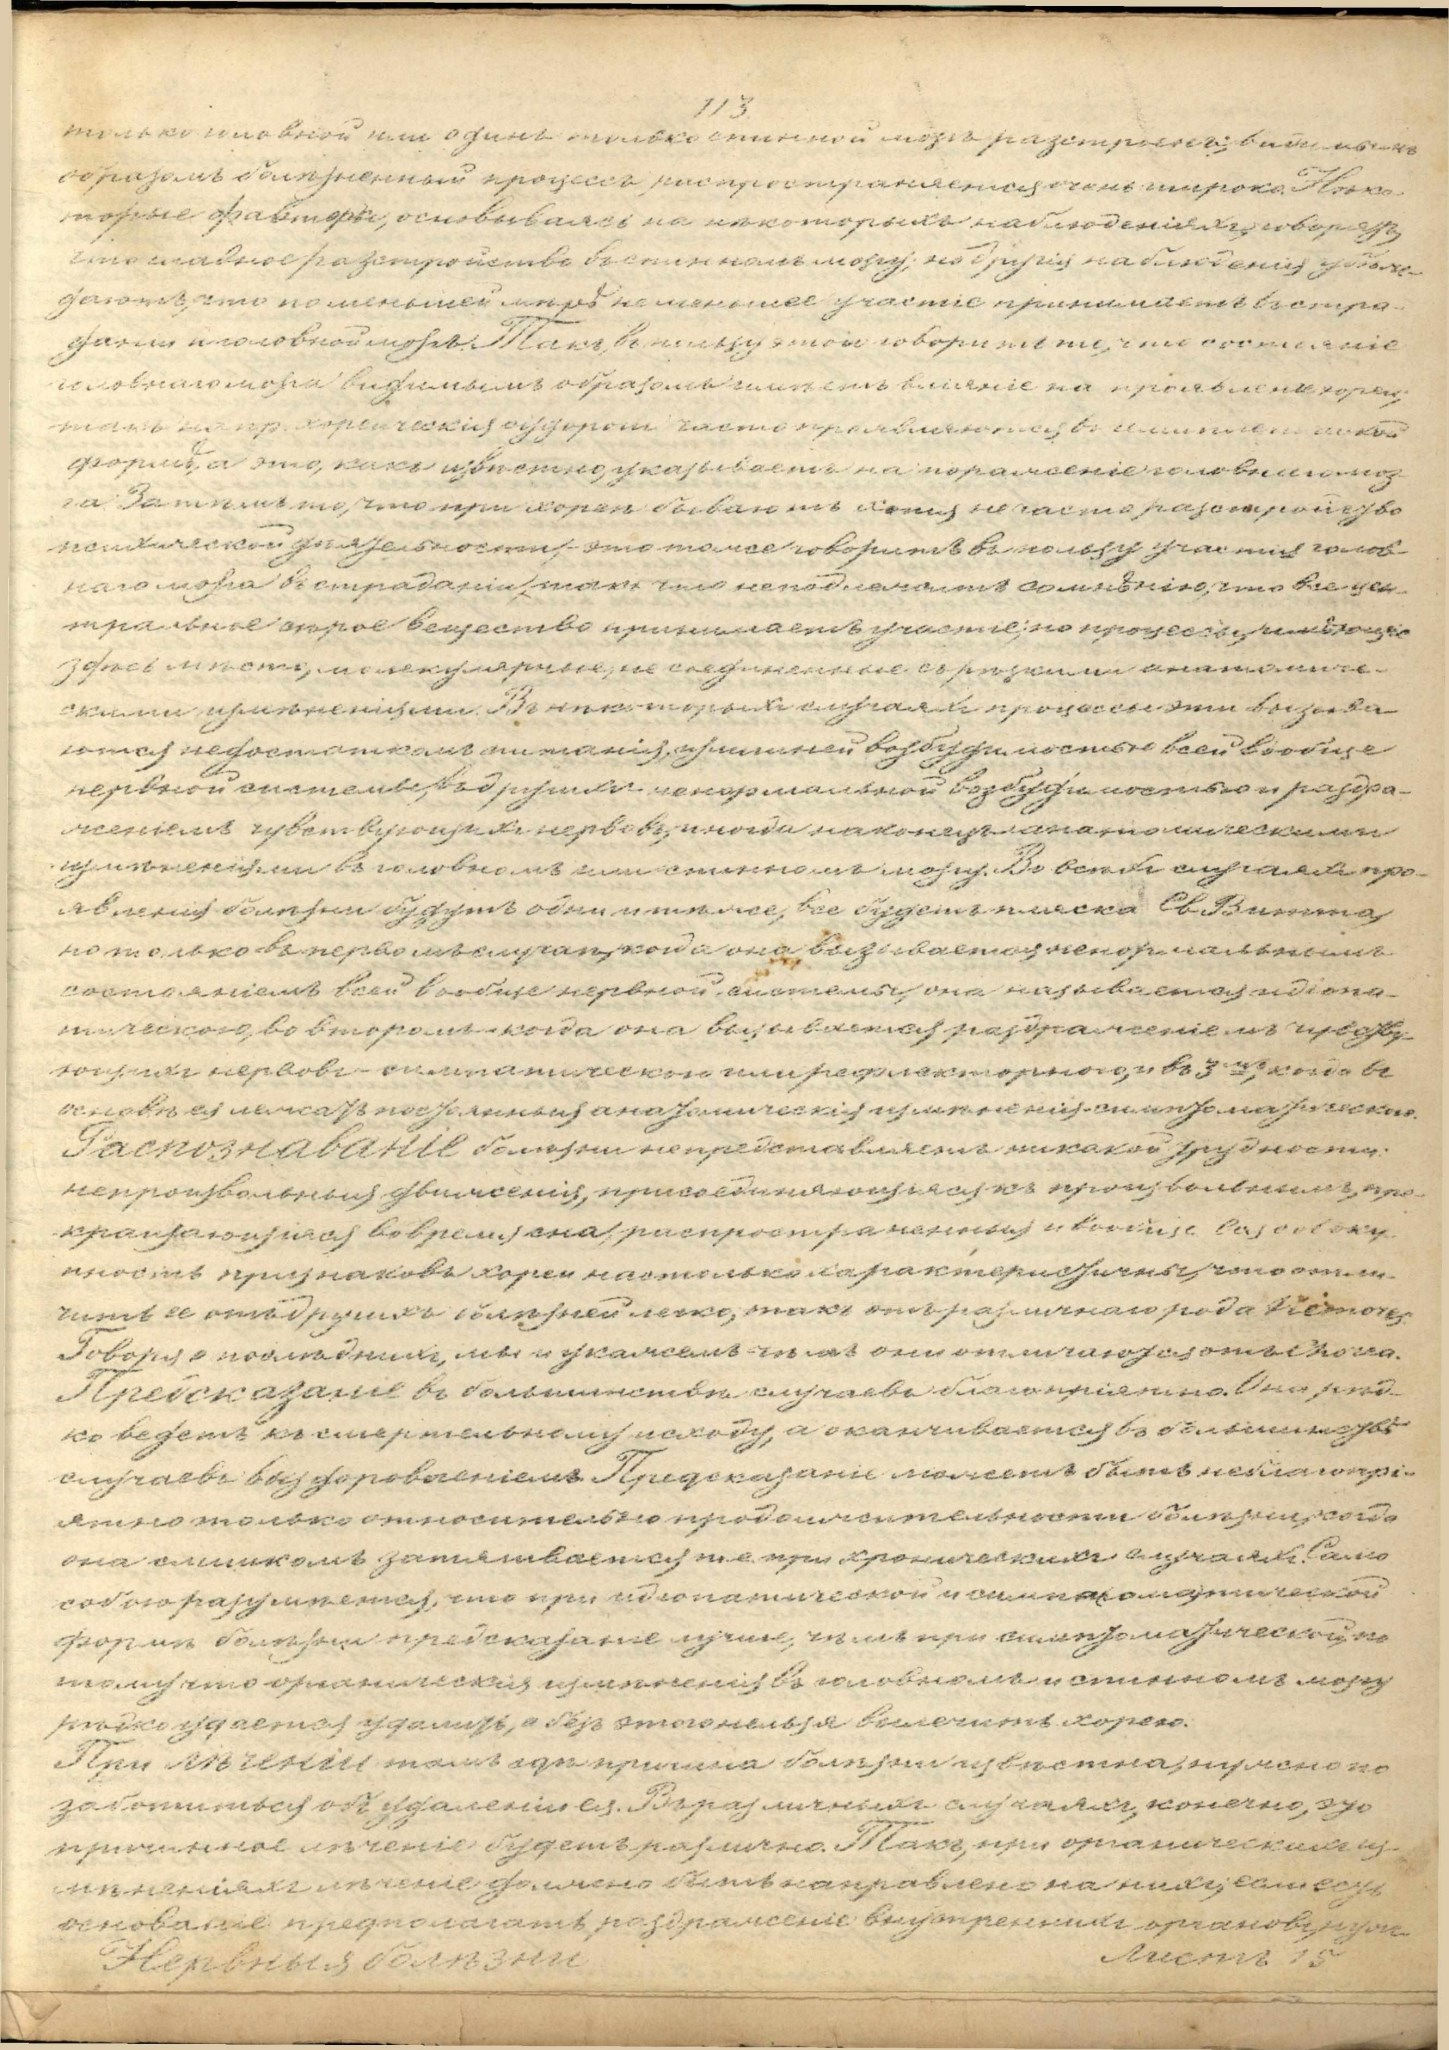 113.
только головной или одинъ только спинной мозгъ разстроенъ; видимымъ
образомъ болѣзненный процессъ распространяется очень широко. Нѣко-
торые авторы, основываясь на нѣкоторыхъ наблюденіяхъ, говорятъ,
что главное разстройство въ спинномъ мозгу; но другія наблюденія убѣж-
даютъ, что по меньшей мѣрѣ не меньшее участіе принимаетъ въ стра-
даніи и головной мозгъ. Такъ, въ пользу этой говоритъ то, что состояніе
головнаго мозга видимымъ образомъ имѣетъ вліяніе на проявленіе хореи;
такъ напр. хореическія судороги часто проявляются въ
формѣ, а это, какъ извѣстно, указываетъ на пораженіе головнаго моз-
га. Затѣмъ то, что при хореѣ бываютъ хотя не часто разстройство
психической дѣятельности, - это тоже говоритъ въ пользу участія голов-
наго мозга въ страданіи, такъ что не подлежитъ сомнѣнію, что все цен-
тральное сѣрое вещество принимаетъ участіе; но процессы, имѣющіе
здѣсь мѣсто, молекулярные, не соединенные съ рѣзкими анатомиче-
скими измѣненіями. Въ нѣкоторыхъ случаяхъ процессы эти вызыва-
ются недостаткомъ питанія, излишней возбудимостью всей вообще
нервной системы, въ другихъ ненормальной возбудимостью и раздра-
женіемъ чувствующихъ нервовъ, иногда наконецъ анатомическими
измѣненіями въ головномъ или спинномъ мозгу. Во всѣхъ случаяхъ про-
явленія болѣзни будутъ одни и тѣже, все будетъ пляска Св. Витта,
но только въ первомъ случаѣ, когда она вызывается ненормальнымъ
состояніемъ всей вообще нервной системы, она называется идіопа-
тическою, во второмъ когда она вызывается раздраженіемъ чувству-
ющихъ нервовъ - симпатическою или рефлекторною, и въ 3мъ, когда въ
основѣ ея лежатъ постоянныя анатомическія измѣненія - симптоматическою.
Распознаваніе болѣзни не представляетъ никакой трудности:
непроизвольныя движенія, присоединяющіяся къ произвольнымъ, пре-
кращающіяся во время сна, распространенныя и вообще вся совоку-
пность признаковъ хореи настолько характеристичны, что отли-
чить ее отъ другихъ болѣзней легко, такъ отъ различнаго рода
Говоря о послѣднихъ, мы и укажемъ чѣмъ они отличаются отъ
Предсказаніе въ большинствѣ случаевъ благопріятно. Она рѣд-
ко ведетъ къ смертельному исходу, а оканчивается въ большинствѣ
случаевъ выздоровленіемъ. Предсказаніе можетъ быть неблагопрі-
ятно только относительно продолжительности болѣзни, когда
она слишкомъ затягивается т.е. при хроническихъ случаяхъ. Само
собою разумѣется, что при идіопатической и симпатической
формѣ болѣзни предсказаніе лучше, чѣмъ при симптоматической, по
тому что органическія измѣненія въ головномъ и спинномъ мозгу
рѣдко удается удалить, а безъ этого нельзя вылечить хорею.
При лѣченіи тамъ гдѣ причина болѣзни извѣстна, нужно по
заботиться объ удаленіи ея. Въ различныхъ случаяхъ, конечно, это
причинное лѣченіе будетъ различно. Такъ, при органическихъ из-
мѣненіяхъ лѣченіе должно быть направлено на нихъ, если есть
основаніе предполагать раздраженіе внутреннихъ органовъ,
Нервныя болѣзни Листъ 15